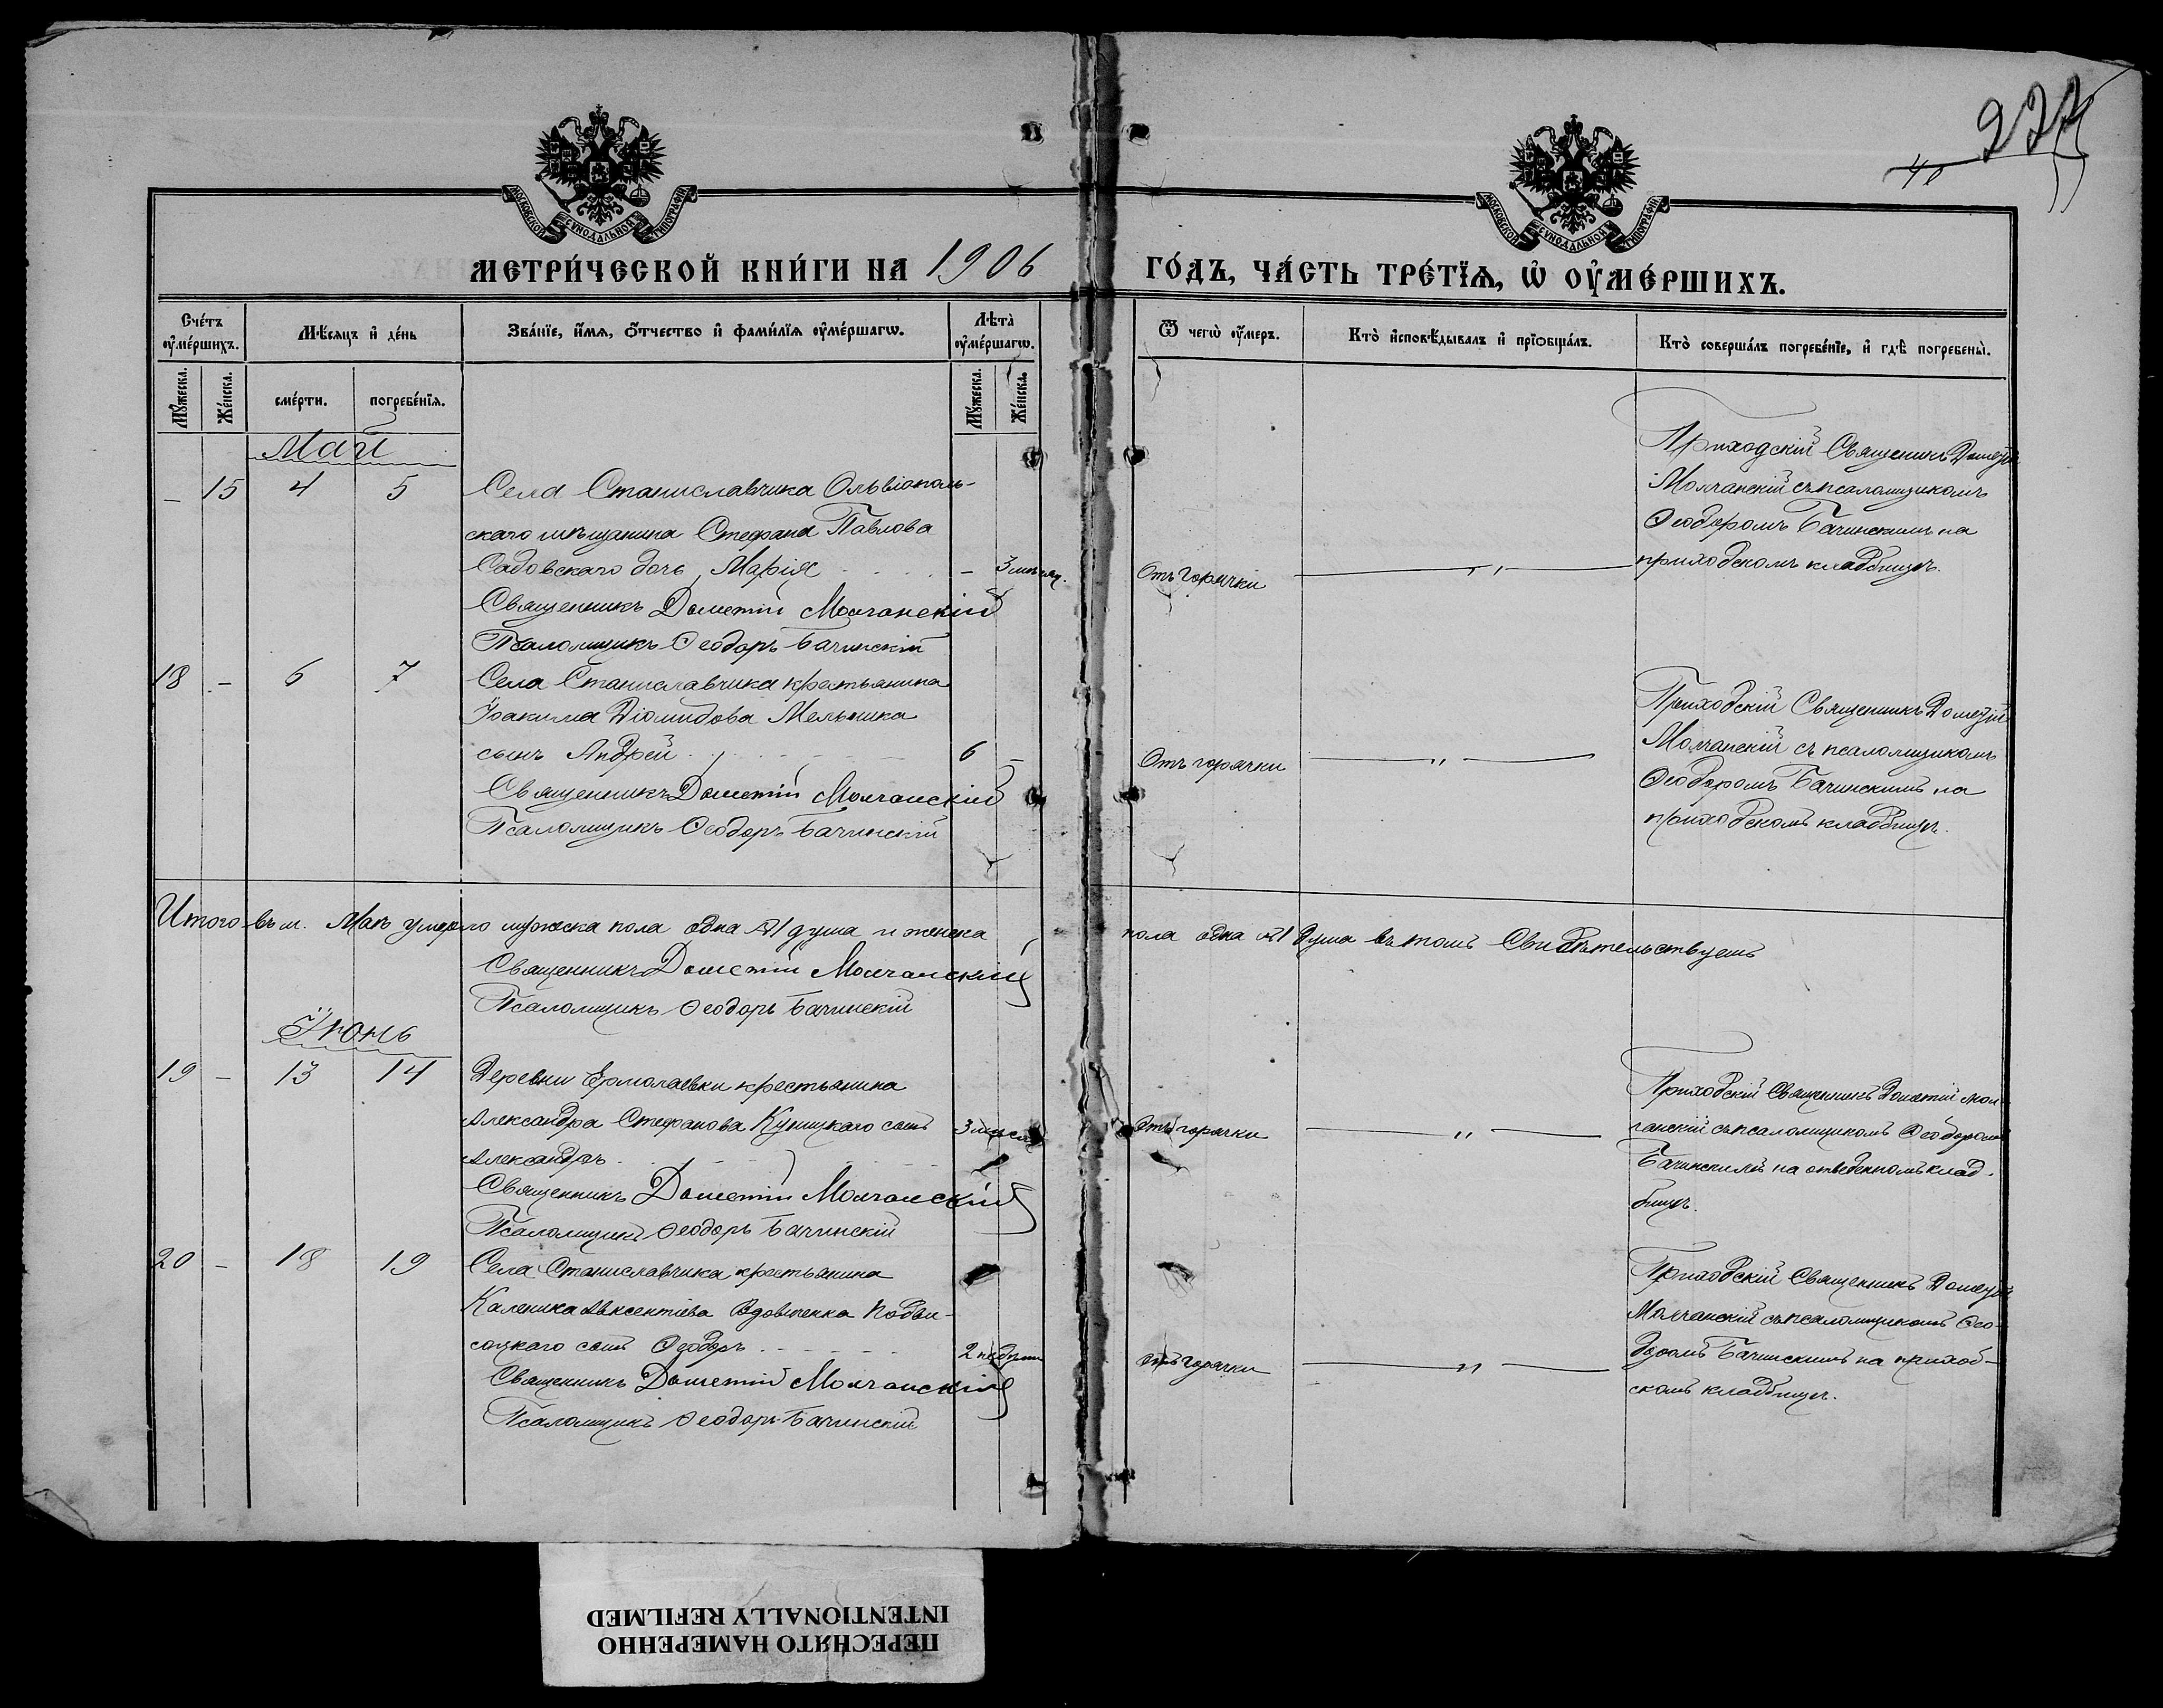 227
40
МОСКОВСКОЙ СѴНОДАЛЬНОЙ ТИПОГРАФІИ
МОСКОВСКОЙ СѴНОДАЛЬНОЙ ТИПОГРАФІИ
МЕТРИ́ЧЕСКОЙ КНИ́ГИ НА 1906
ГО́ДЪ, ЧА́СТЬ ТРЕ́ТЇѦ, Ѡ҆ ОУ҆МЕ́РШИХЪ.
Сче́тъ оу҆ме́ршихъ.
Мѣ́сяцъ и҆ де́нь
Зва́нїе, и҆́мѧ, ѻ҆́тчество и҆ фами́лїѧ оу҆ме́ршагѡ.
Лѣ́та̀ оу҆ме́ршагѡ.
Ѿ чегѡ̀ оу҆́меръ.
Кто̀ и҆сповѣ́дывалъ и҆ прїѻбща́лъ.
Кто̀ соверша́лъ погребе́нїе, и҆ гдѣ̀ погребены̀.
Мꙋ́жеска.
Же́нска.
сме́рти.
погребе́нїѧ.
Мꙋ́жеска.
Же́нска.
Май
– 15 4 5
Села Станиславчика Ольвіополь-
скаго мѣщанина Стефана Павлова
Садовскаго дочь Марія – 3 мѣсяц.
Священникъ Дометій Молчанскій
Псаломщикъ Ѳеодоръ Бачинскій
Отъ горячки
Приходскій Священикъ Дометій
Молчанскій съ псаломщикомъ
Ѳеодоромъ Бачинскимъ на
приходскомъ кладбищѣ.
18 – 6 7
Села Станиславчика крестьянина
Іоакима Діомидова Мельника
сынъ Андрей 6 –
Священникъ Дометій Молчанскій
Псаломщикъ Ѳеодоръ Бачинскій
Отъ горячки
Приходскій Священникъ Дометій
Молчанскій съ псаломщикомъ
Ѳеодоромъ Бачинскимъ на
приходскомъ кладбищѣ.
Итого въ м. Маѣ умерло мужеска пола одна 1 душа и женска
пола одна 1 душа въ томъ Свидѣтельствуемъ
Священникъ Дометій Молчанскій
Псаломщикъ Ѳеодоръ Бачинскій
Іюнь
19 – 13 14
Деревни Ермолаевки крестьянина
Александра Стефанова Куницкаго сынъ 3 мѣсяц
Александръ
Священникъ Дометій Молчанскій
Псаломщикъ Ѳеодоръ Бачинскій
Отъ горячки
Приходскій Священникъ Дометій Мол-
чанскій съ псаломщикомъ Ѳеодоромъ
Бачинскимъ на отведенномъ клад-
бищѣ.
20 – 18 19
Села Станиславчика крестьянина
Каленика Авксентіева Вдовиченка Подви-
соцкаго сынъ Ѳеодоръ 2 недѣли
Священникъ Дометій Молчанскій
Псаломщикъ Ѳеодоръ Бачинскій
Отъ горячки
Приходскій Священникъ Дометій
Молчанскій съ псаломщикомъ Ѳео-
доромъ Бачинскимъ на приход-
скомъ кладбищѣ.
ПЕРЕСНЯТО НАМЕРЕННО
INTENTIONALLY REFILMED